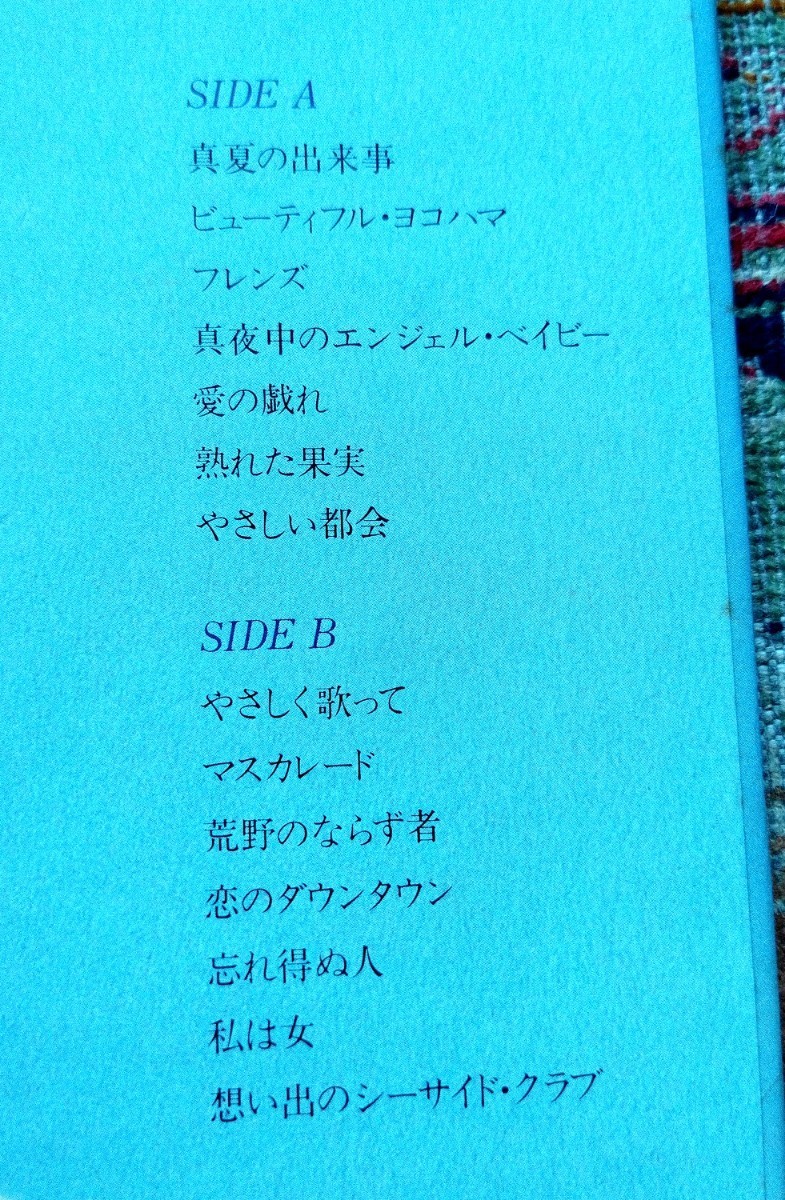 SIDE A
真夏の出来事
ビューティフル・ヨコハマ
フレンズ
真夜中のエンジェル・ベイビー
愛の戯れ
熟れた果実
やさしい都会
SIDE B
やさしく歌って
マスカレード
荒野のならず者
恋のダウンタウン
忘れ得ぬ人
私は女
想い出のシーサイド・クラブ